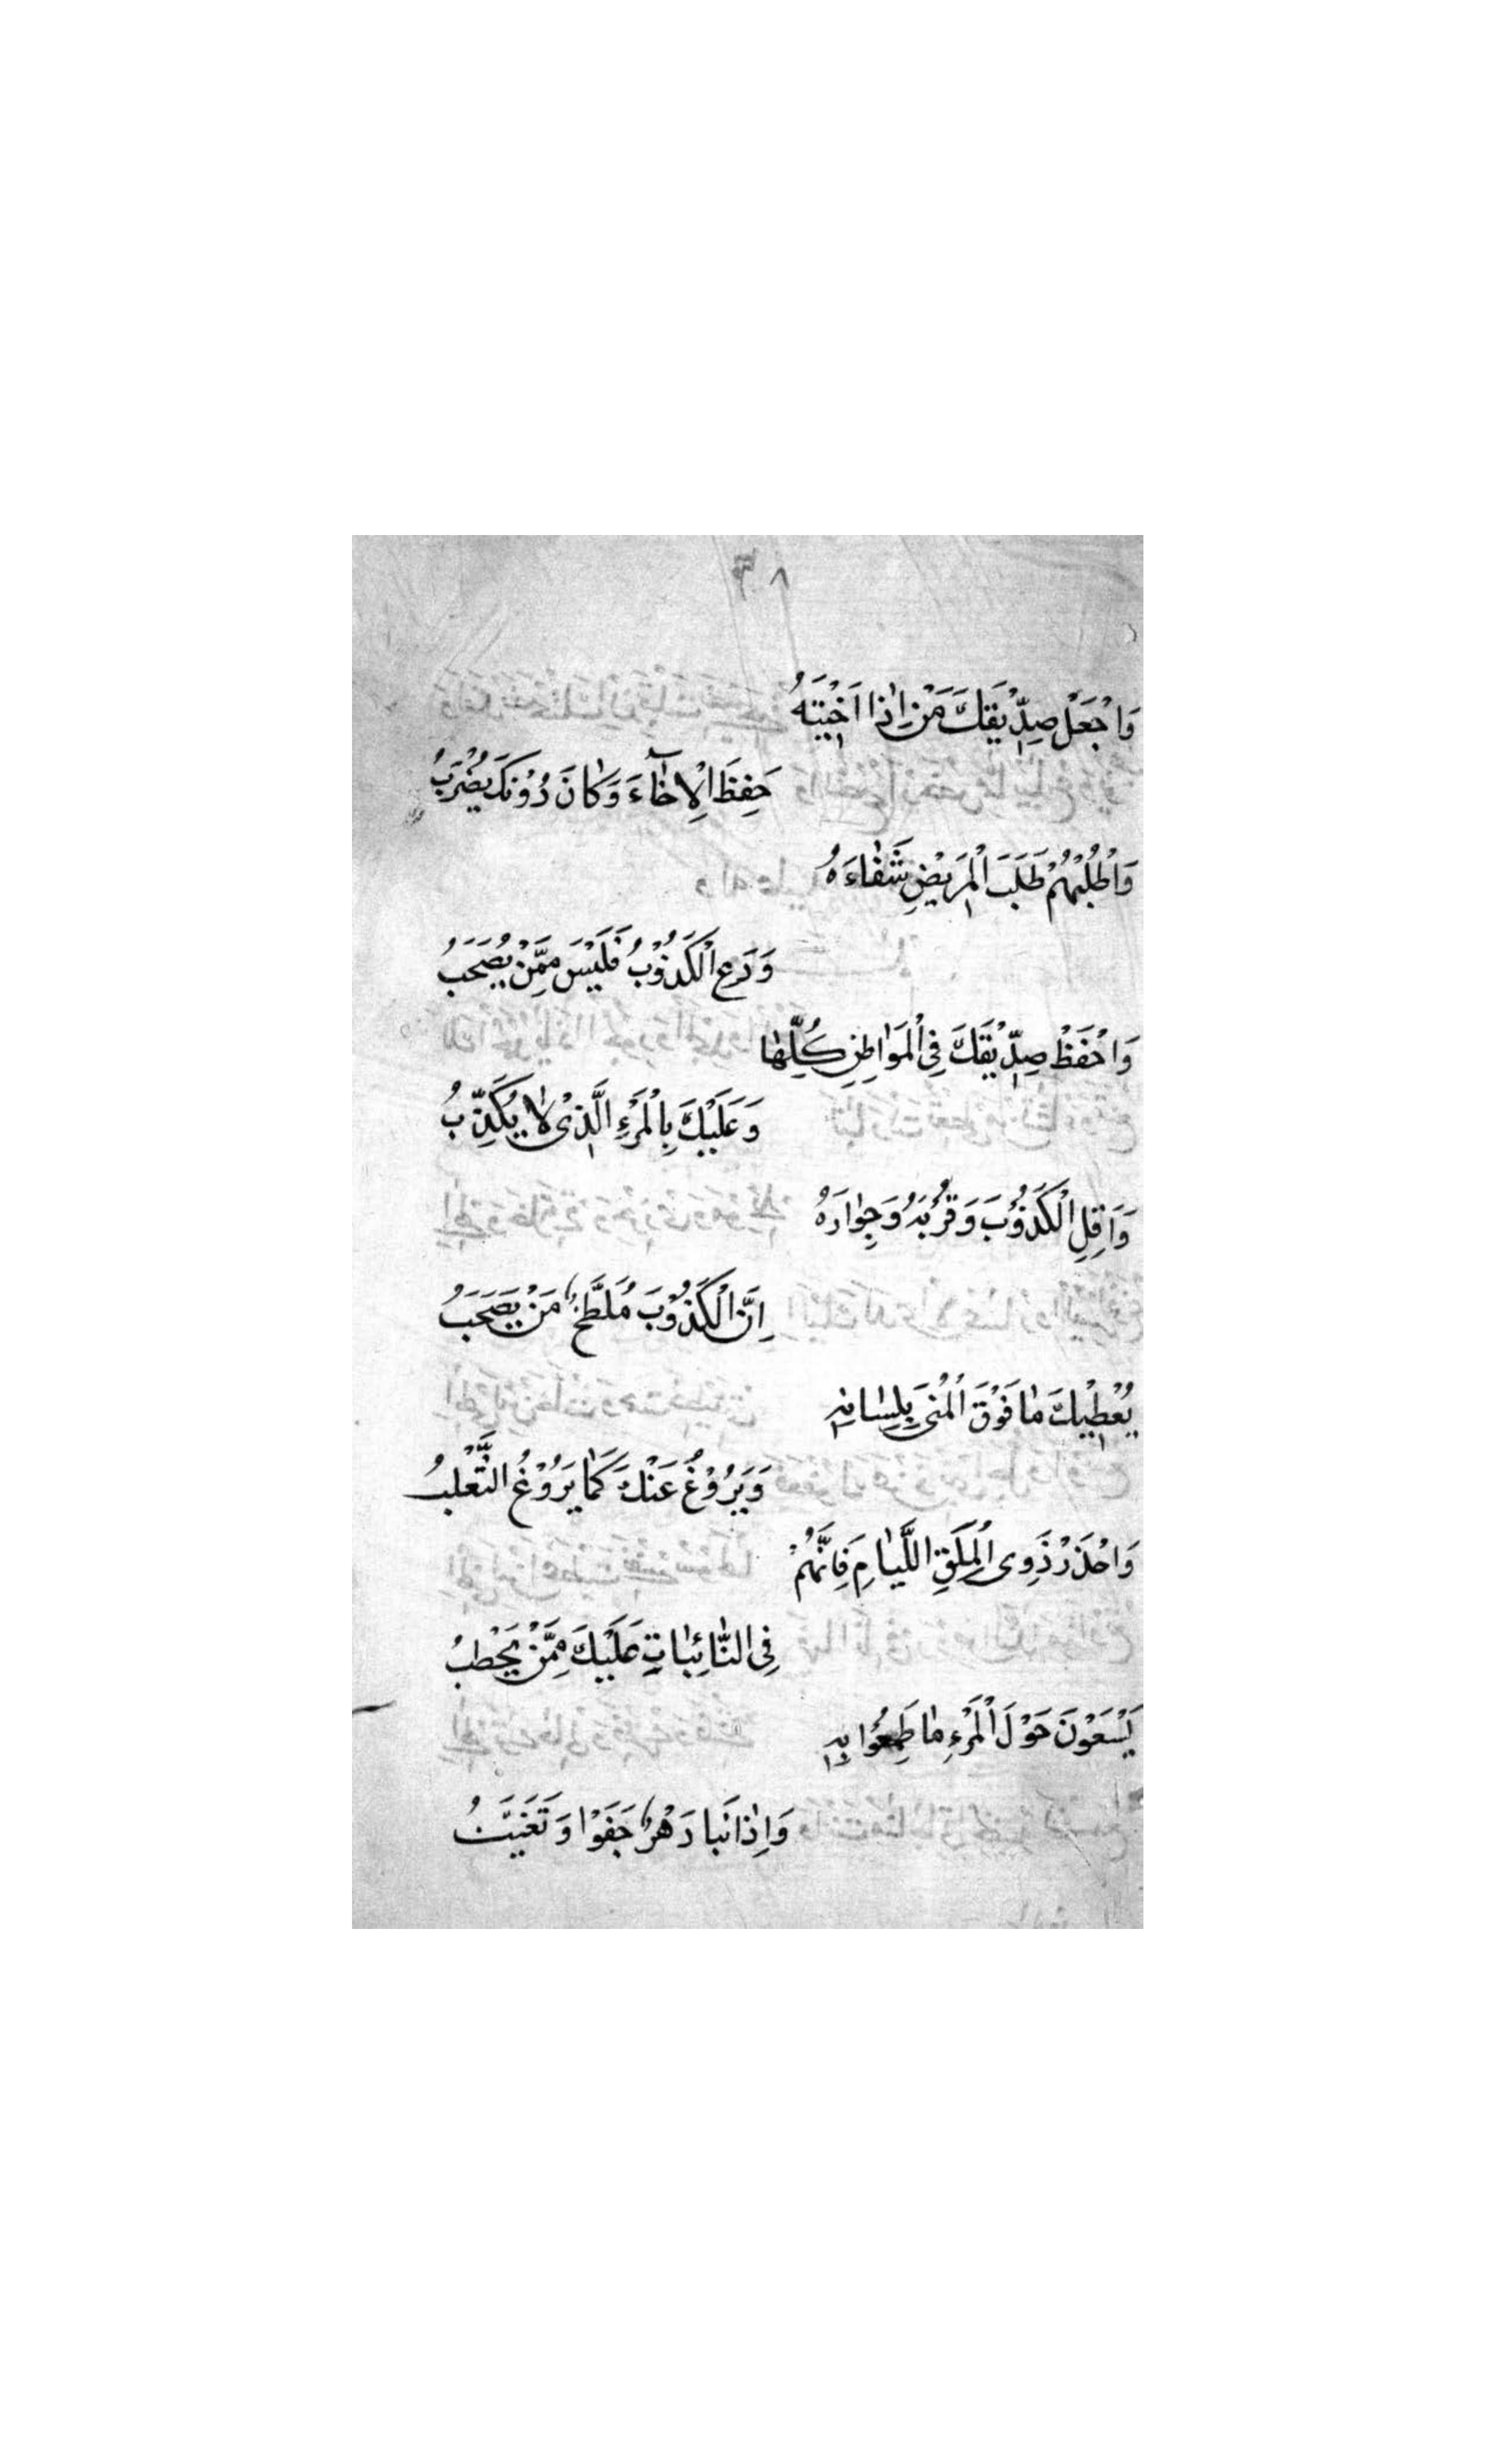 ٨
وَاجْعَلْ صِدِّيْقَكَ مَنْ اِذَا اٰخَيْتَهُ
حَفِظَ الْاِخَآءَ وَكَانَ دُوْنَكَ يَضْرَبُ
وَاطْلُبْهُمْ طَلَبَ الْمَرِيْضِ شَفَاءَهُ
وَدَعِ الْكَذُوْبُ فَلَيْسَ مِمَّنْ يُصْحَبُ
وَاحْفَظْ صِدِّيْقَكَ فِى الْمَوَاطِنِ كُلِّهَا
وَعَلَيْكَ بِالْمَرْءِ الَّذِىْ لَا يَكَذِّبُ
وَاقِلِ الْكَذُوْبَ وَقُرْبَهُ وَجِوَارَهُ
اِنَّ الْكَذُوْبَ مُلَطِّخٌ مَنْ يَصْحَبُ
يُعْطِيْكَ مَا فَوْقَ الْمُنٰى بِلِسَانِهٖ
وَيَرُوْغُ عَنْكَ كَمَا يَرُوْغُ الثَّعْلَبُ
وَاحْذَرْ ذَوِى الْمَلَقِ اللِّيَامِ فَاِنَّهُمْ
فِى النَّائِبَاتِ عَلَيْكَ مِمَّنْ يَحْطِبُ
يَسْعَوْنَ حَوْلَ الْمَرْءِ مَا طَمِعُوْا بِهٖ
وَاِذَا نَبَا دَهْرٌ جَفَوْا وَتَغَيَّبُ